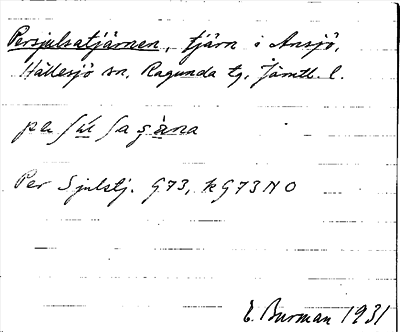 Persjulsatjärnen, tjärn i Ansjö,
Hällesjö sn, Ragunda tg, Jämtl. l.
Per Sjulstj. G73, kG73NO
E. Burman 1931